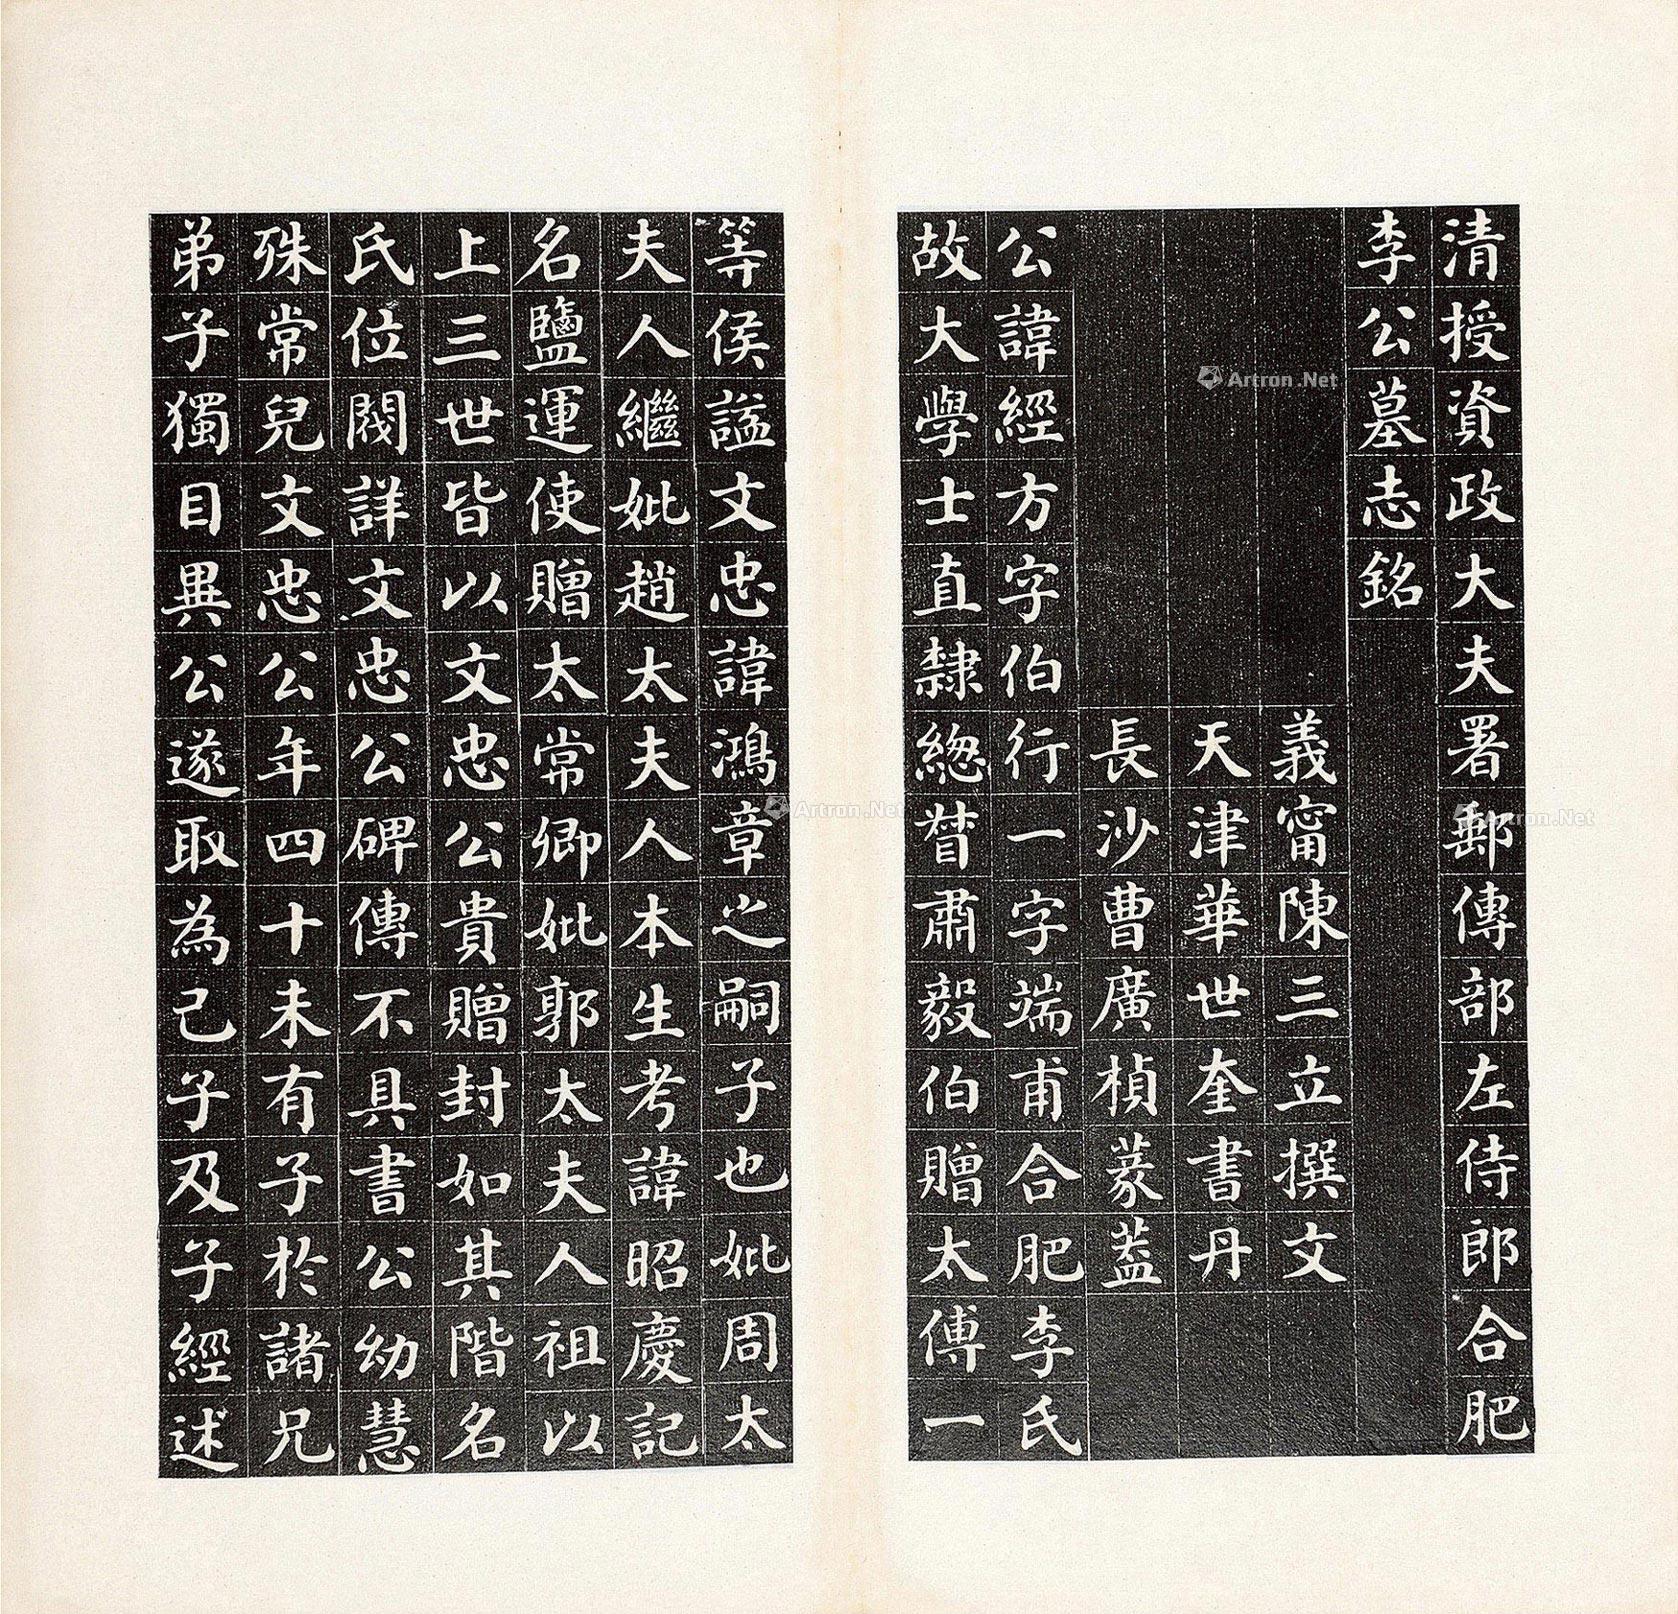 清授資政大夫署郵傳部左侍郎合肥
李公墓志銘
義甯陳三立撰文
天津華世奎書丹
長沙曹廣楨篆葢
公諱經方字伯行一字端甫合肥李氏
故大學士直隸總督肅毅伯贈太傅一
等侯諡文忠諱鴻章之嗣子也妣周太
夫人繼妣趙太夫人本生考諱昭慶記
名鹽運使贈太常卿妣郭太夫人祖以
上三世皆以文忠公貴贈封如其階名
氏位閥詳文忠公碑傳不具書公幼慧
殊常兒文忠公年四十未有子於諸兄
弟子獨目異公遂取為己子及子經述
Artron.Net
Artron.Net
Artron.Net